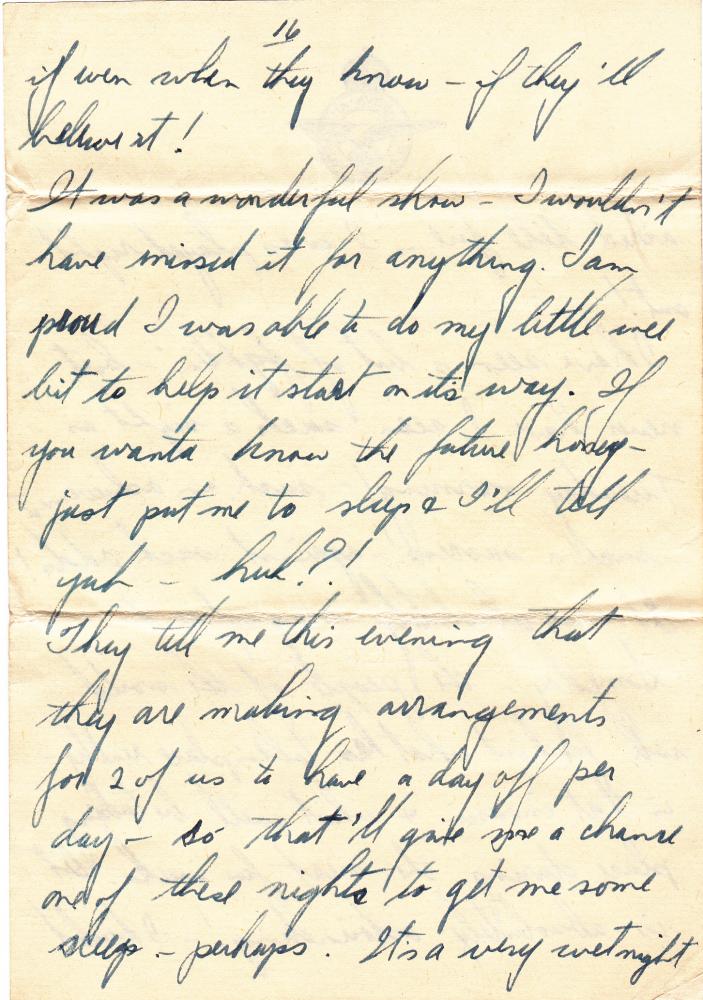 16
if even when they know - if they'll
believe it!
It was a wonderful show - I wouldn't
have missed it for anything. I am
proud I was able to do my little wee
bit to help it start on its way. If
you wanta know the future honey -
just put me to sleep & I'll tell
yuh - huh?!
They tell me this evening that
they are making arrangements
for 2 of us to have a day off per
day - so that'll give me a chance
one of these nights to get me some
sleep - perhaps. It's a very wet night